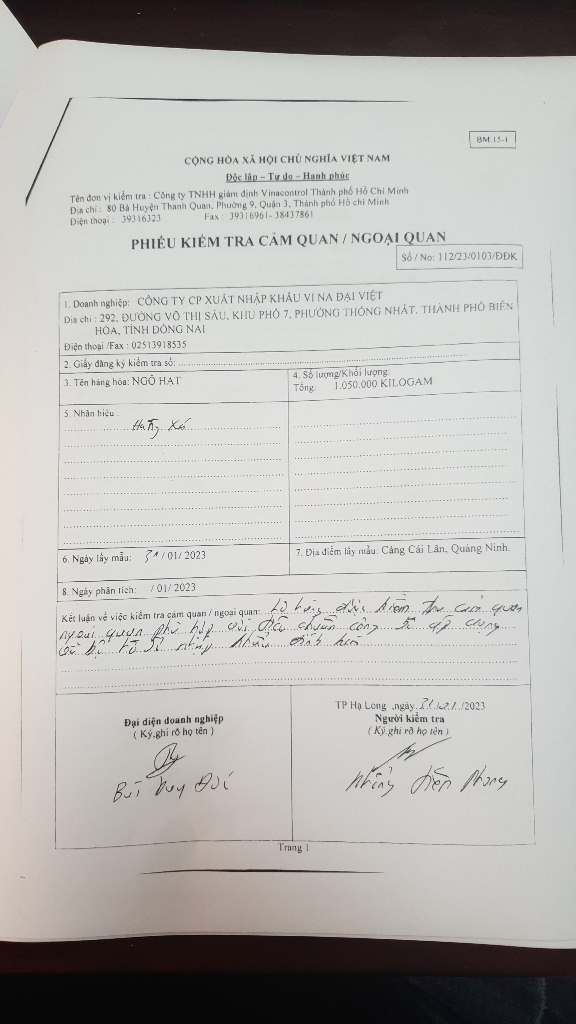 BM.15-1
CỘNG HÒA XÃ HỘI CHỦ NGHĨA VIỆT NAM
Độc lập – Tự do – Hạnh phúc
Tên đơn vị kiểm tra : Công ty TNHH giám định Vinacontrol Thành phố Hồ Chí Minh
Địa chỉ : 80 Bà Huyện Thanh Quan, Phường 9, Quận 3, Thành phố Hồ chí Minh
Điện thoại : 39316323 Fax : 39316961- 38437861
PHIẾU KIỂM TRA CẢM QUAN / NGOẠI QUAN
Số / No: 112/23/0103/ĐĐK
1. Doanh nghiệp: CÔNG TY CP XUẤT NHẬP KHẨU VI NA ĐẠI VIỆT
Địa chỉ : 292, ĐƯỜNG VÕ THỊ SÁU, KHU PHỐ 7, PHƯỜNG THỐNG NHẤT, THÀNH PHỐ BIÊN
HÒA, TỈNH ĐỒNG NAI
Điện thoại /Fax : 02513918535
2. Giấy đăng ký kiểm tra số:
3. Tên hàng hóa: NGÔ HẠT
4. Số lượng/Khối lượng:
Tổng: 1.050.000 KILOGAM
5. Nhãn hiệu :
Hàng xá
6. Ngày lấy mẫu: 31 / 01 / 2023
7. Địa điểm lấy mẫu: Cảng Cái Lân, Quảng Ninh.
8. Ngày phân tích: / 01 / 2023
Kết luận về việc kiểm tra cảm quan / ngoại quan: Lô hàng được kiểm tra cảm quan
ngoại quan phù hợp với tiêu chuẩn công bố áp dụng
và bộ hồ sơ nhập khẩu đính kèm
TP Hạ Long ,ngày 31/01/2023
Đại diện doanh nghiệp
( Ký,ghi rõ họ tên )
Người kiểm tra
( Ký,ghi rõ họ tên )
Bùi Duy
Phong
Trang 1